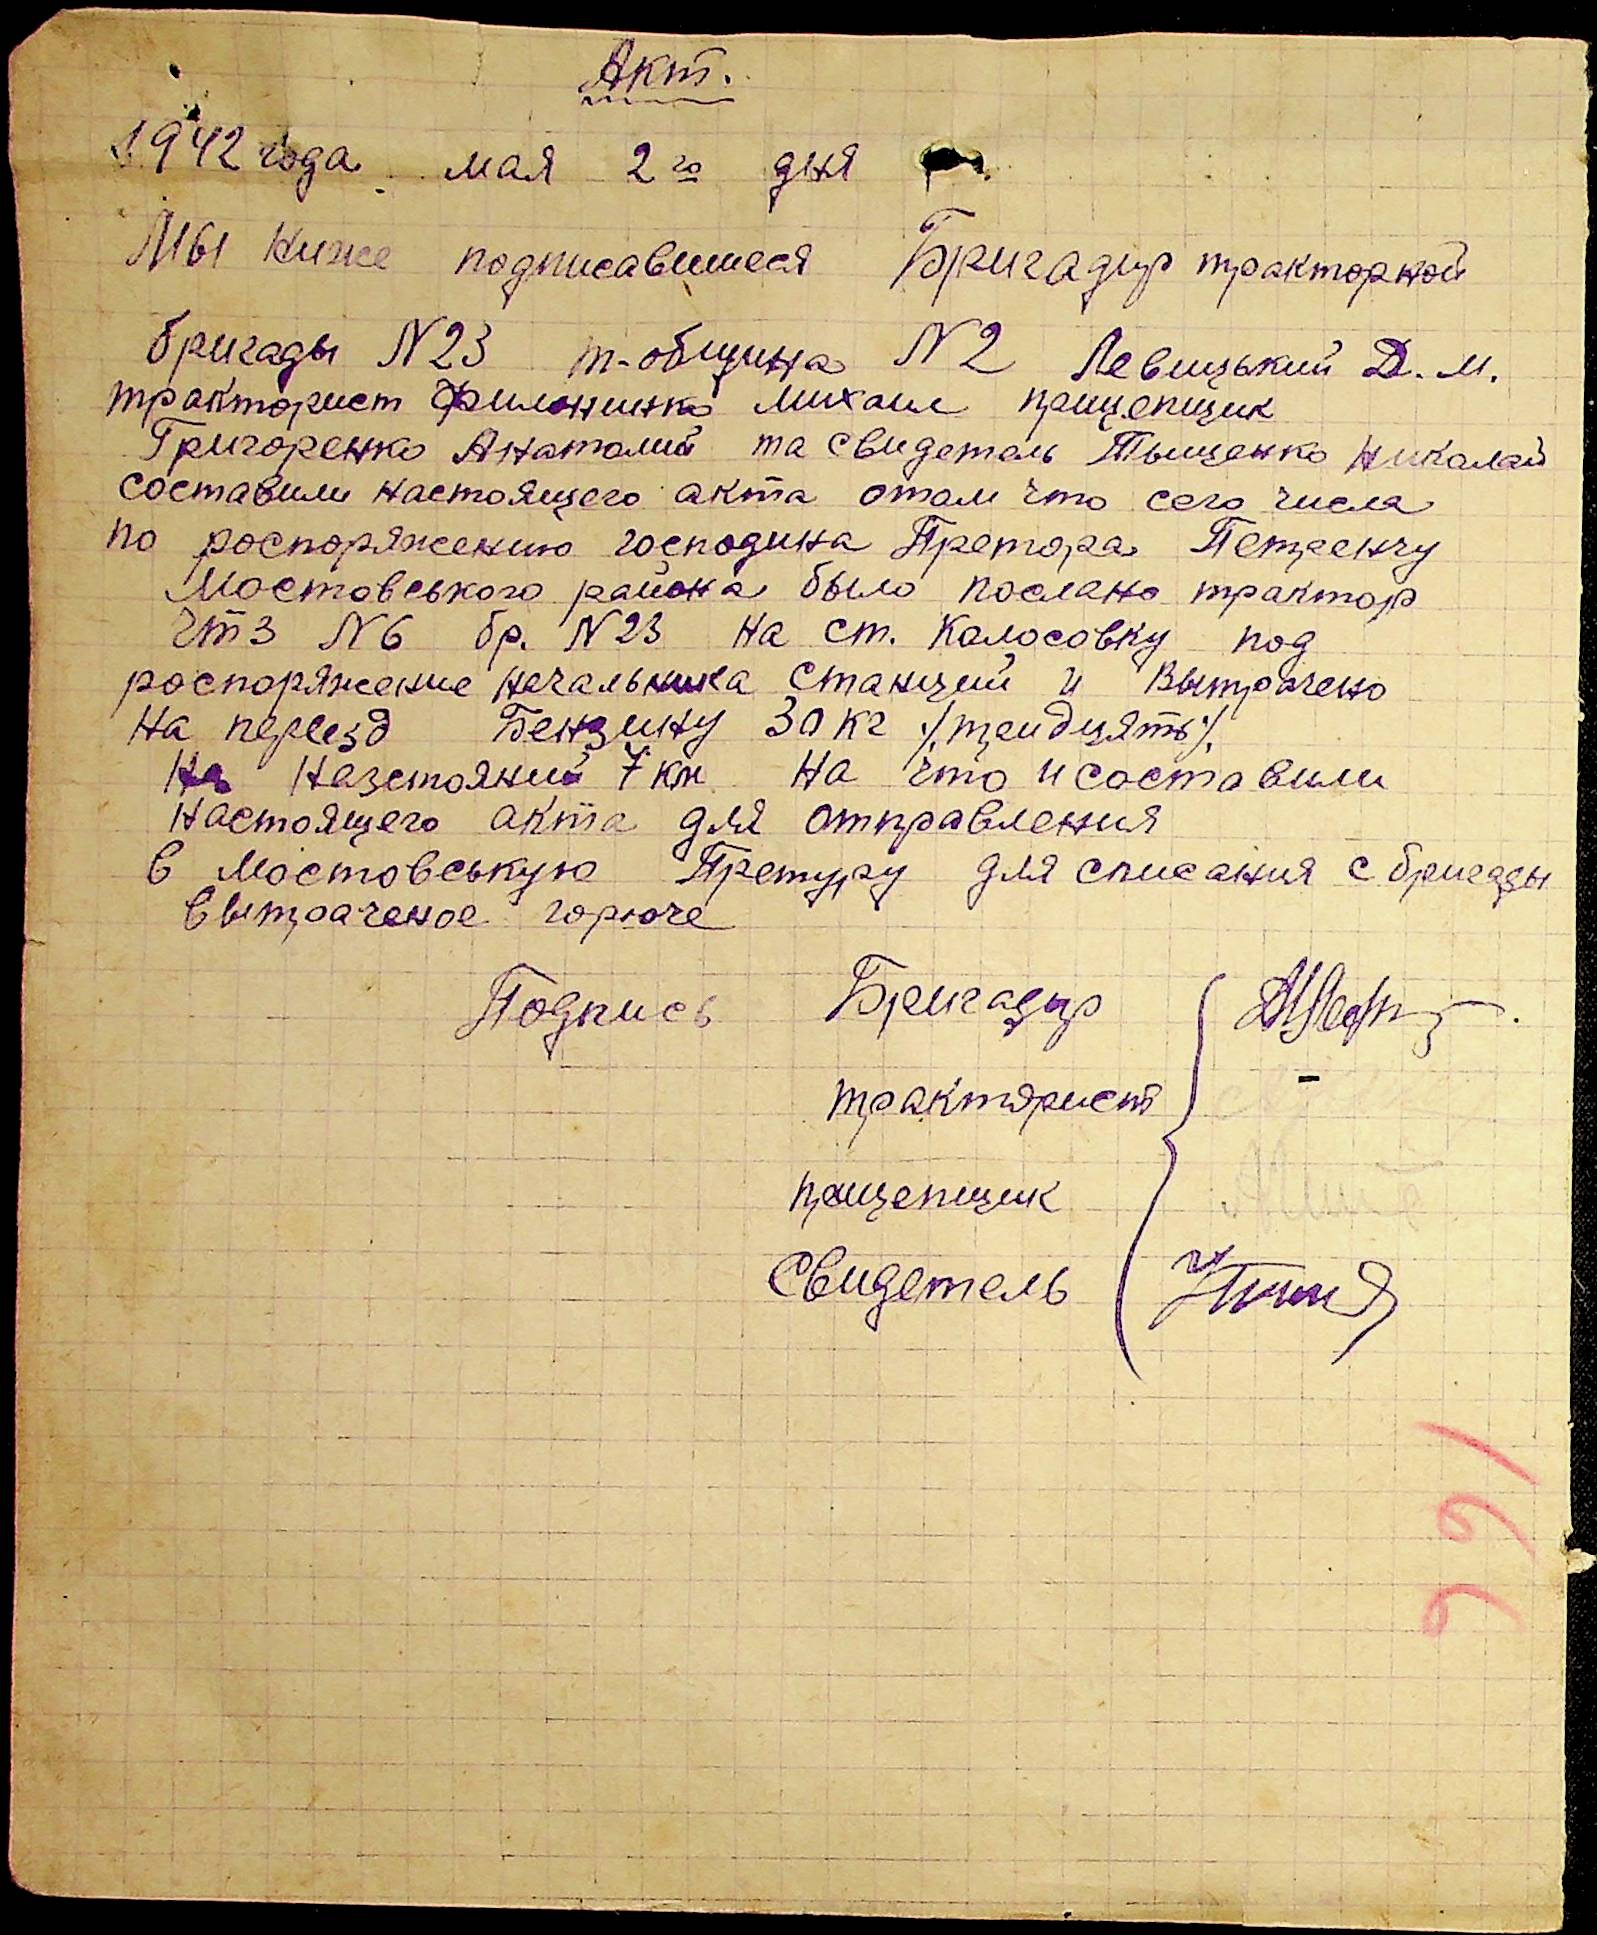 Акт.
1942 года мая 2го дня
Мы ниже подписавшиеся Бригадир тракторной
бригады N23 т-община N2 Левицький Д.М.
тракторист Филонинко Михаил прицепщик
Григоренко Анатолий та свидетель Тыщенко Николай
составили настоящего акта отом что сего числа
по роспоряжению господина Претора Петренчу
Мостовського района было послано трактор
ЧТЗ N6 бр. N23 на ст. Колосовку под
роспоряжение начальника станций и вытрачено
на переезд Бензину 30 кг /тридцять/.
На назстояний 7 км на что и составили
настоящего акта для отправления
в Мостовськую Претуру для списания с бригады
вытраченое горюче
Подпись Бригадир
тракторист
прицепщик
Свидетель
166